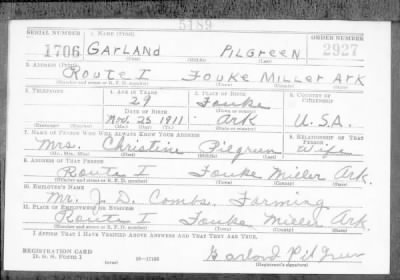 5189
SERIAL NUMBER 1. NAME (Print) ORDER NUMBER
1706 GARLAND PILGREEN 2927
(First) (Middle) (Last)
2. ADDRESS (Print)
Route 1 Fouke Miller Ark
(Number and street or R. F. D. number) (Town) (County) (State)
3. TELEPHONE 4. AGE IN YEARS 5. PLACE OF BIRTH 6. COUNTRY OF CITIZENSHIP
29 Fouke
DATE OF BIRTH (Town or county)
Nov. 25 1911 Ark U.S.A.
(Exchange) (Number) (Mo.) (Day) (Yr.) (State or country)
7. NAME OF PERSON WHO WILL ALWAYS KNOW YOUR ADDRESS 8. RELATIONSHIP OF THAT PERSON
Mrs. Christine Pilgreen Wife
(Mr., Mrs., Miss) (First) (Middle) (Last)
9. ADDRESS OF THAT PERSON
Route 1 Fouke Miller Ark.
(Number and street or R. F. D. number) (Town) (County) (State)
10. EMPLOYER'S NAME
Mr. J. D. Combs. Farming
11. PLACE OF EMPLOYMENT OR BUSINESS
Route 1 Fouke Miller Ark.
(Number and street or R. F. D. number) (Town) (County) (State)
I AFFIRM THAT I HAVE VERIFIED ABOVE ANSWERS AND THAT THEY ARE TRUE.
REGISTRATION CARD
D. S. S. Form 1 (over) 16—17105 Garland Pilgreen
(Registrant's signature)